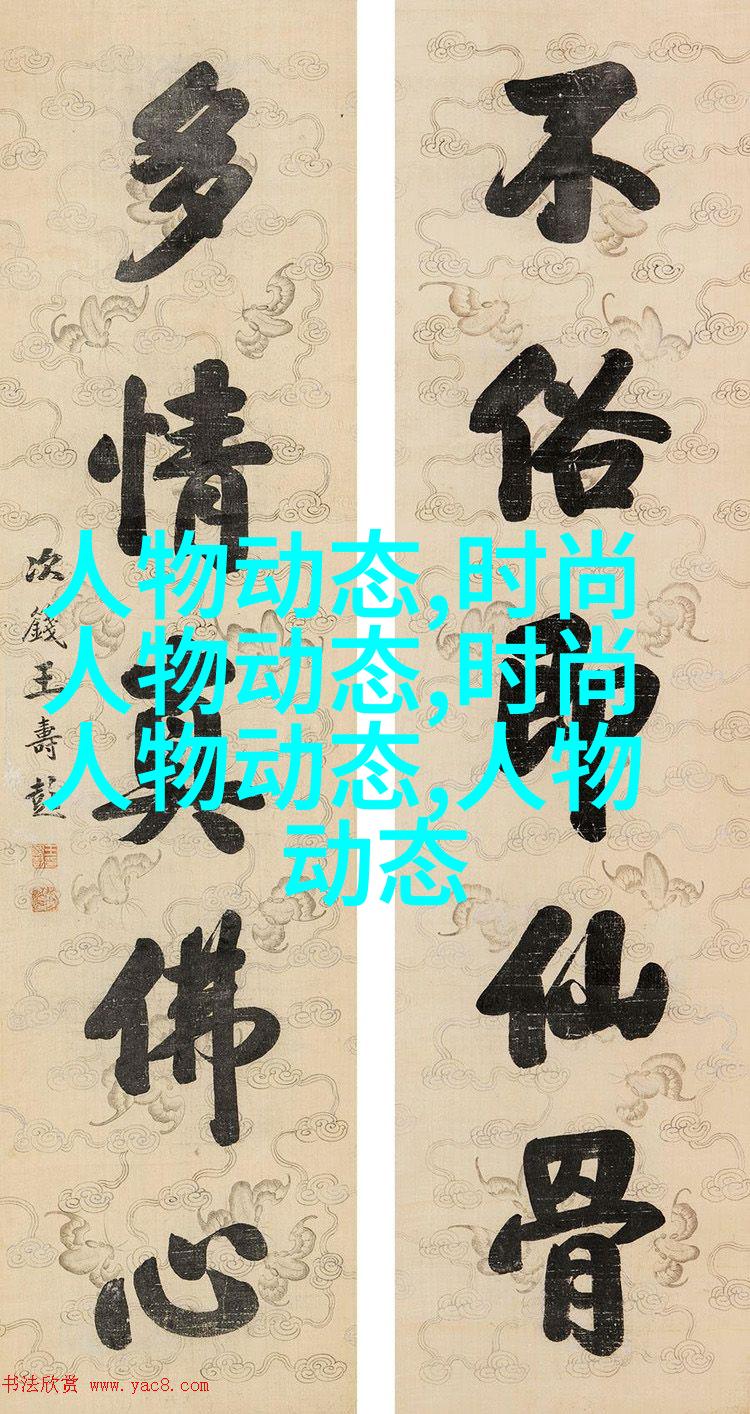 不俗即仙骨
多情真佛心
次籛王壽彭
人物动态,时尚
人物动态,时尚
人物动态,人物
动态
书法欣赏 www.yac8.com